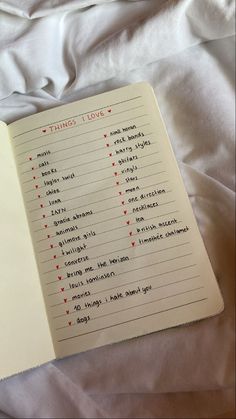 THINGS I LOVE
music
cats
books
taylor swift
shoes
luna
ZAYN
gracie abrams
animals
gilmore girls
twilight
converse
bring me the horizon
louis tomlinson
movies
10 things i hate about you
dogs
niall horan
rock bands
harry styles
guitars
vinyls
stars
moon
one direction
necklaces
tea
british accent
timothée chalamet